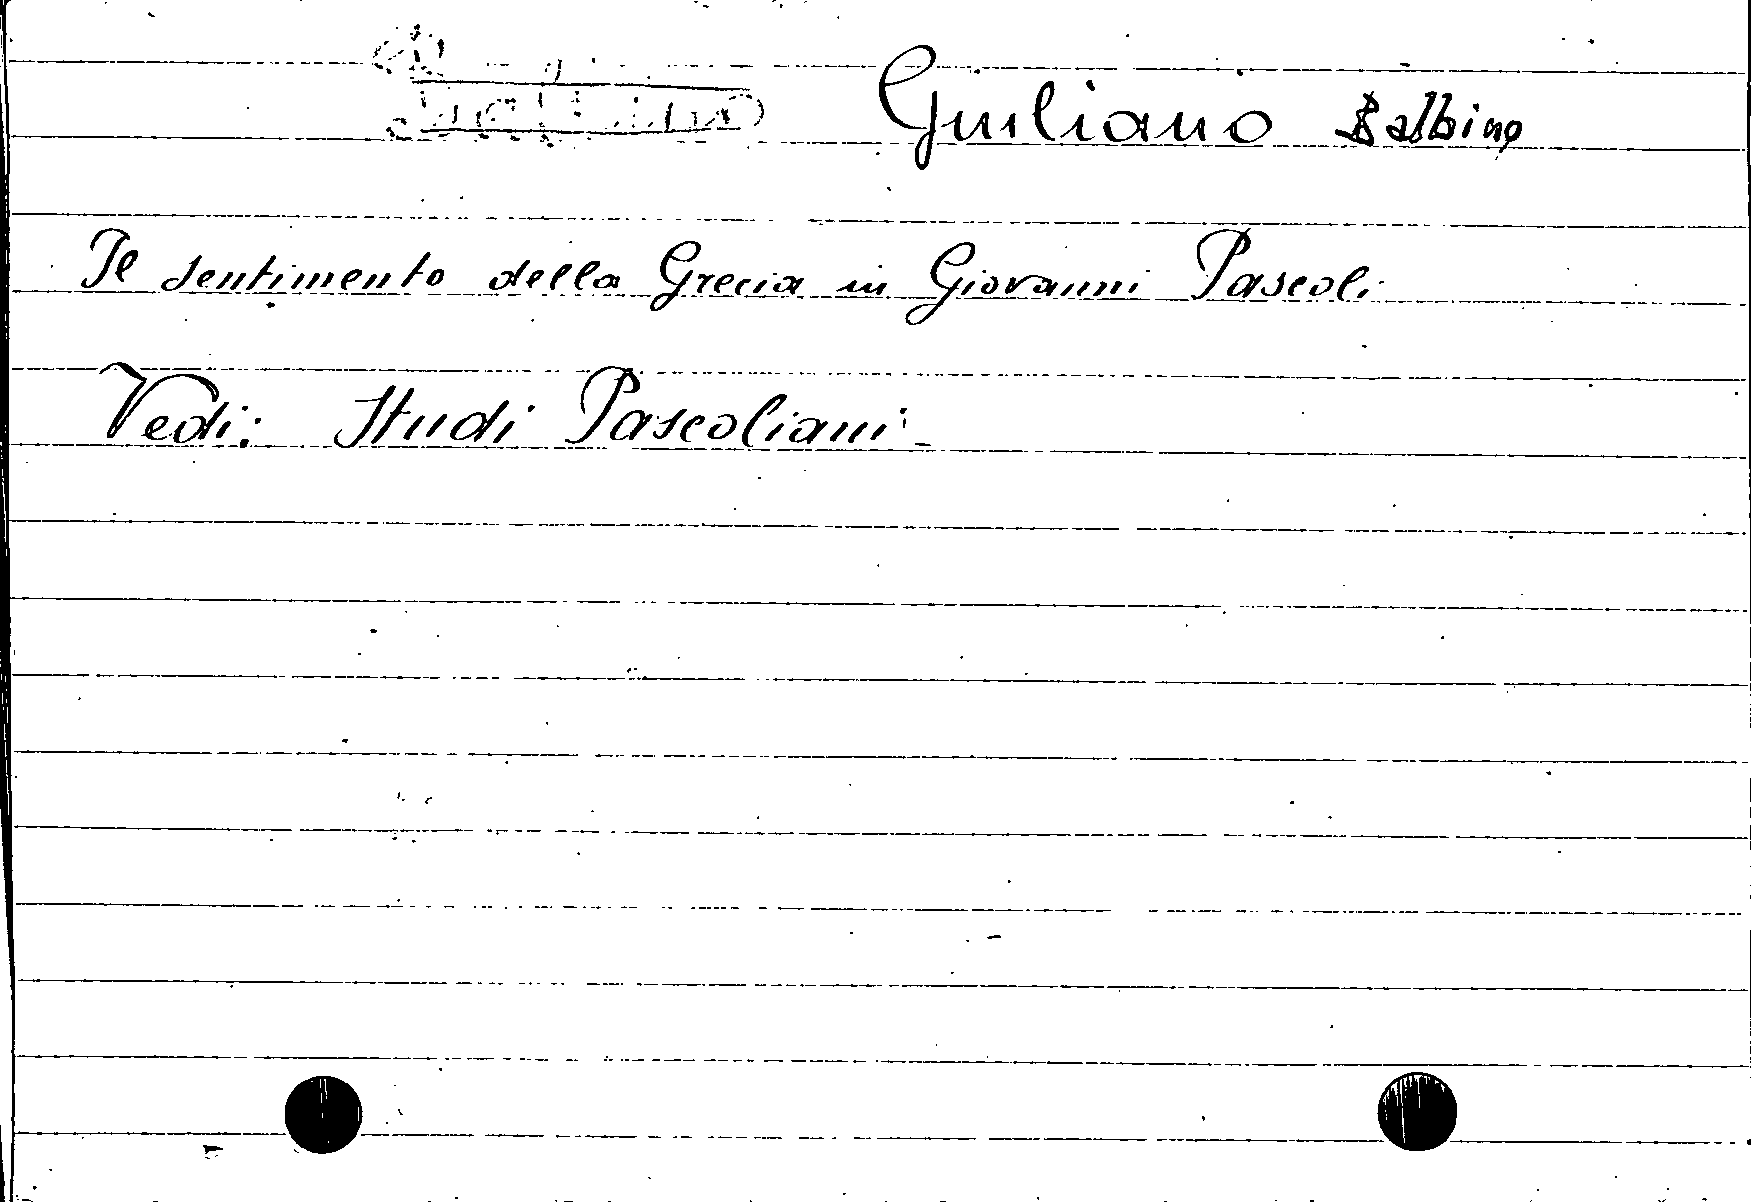 Giuliano Balbino
Il sentimento della Grecia in Giovanni Pascoli
Vedi: Studi Pascoliani